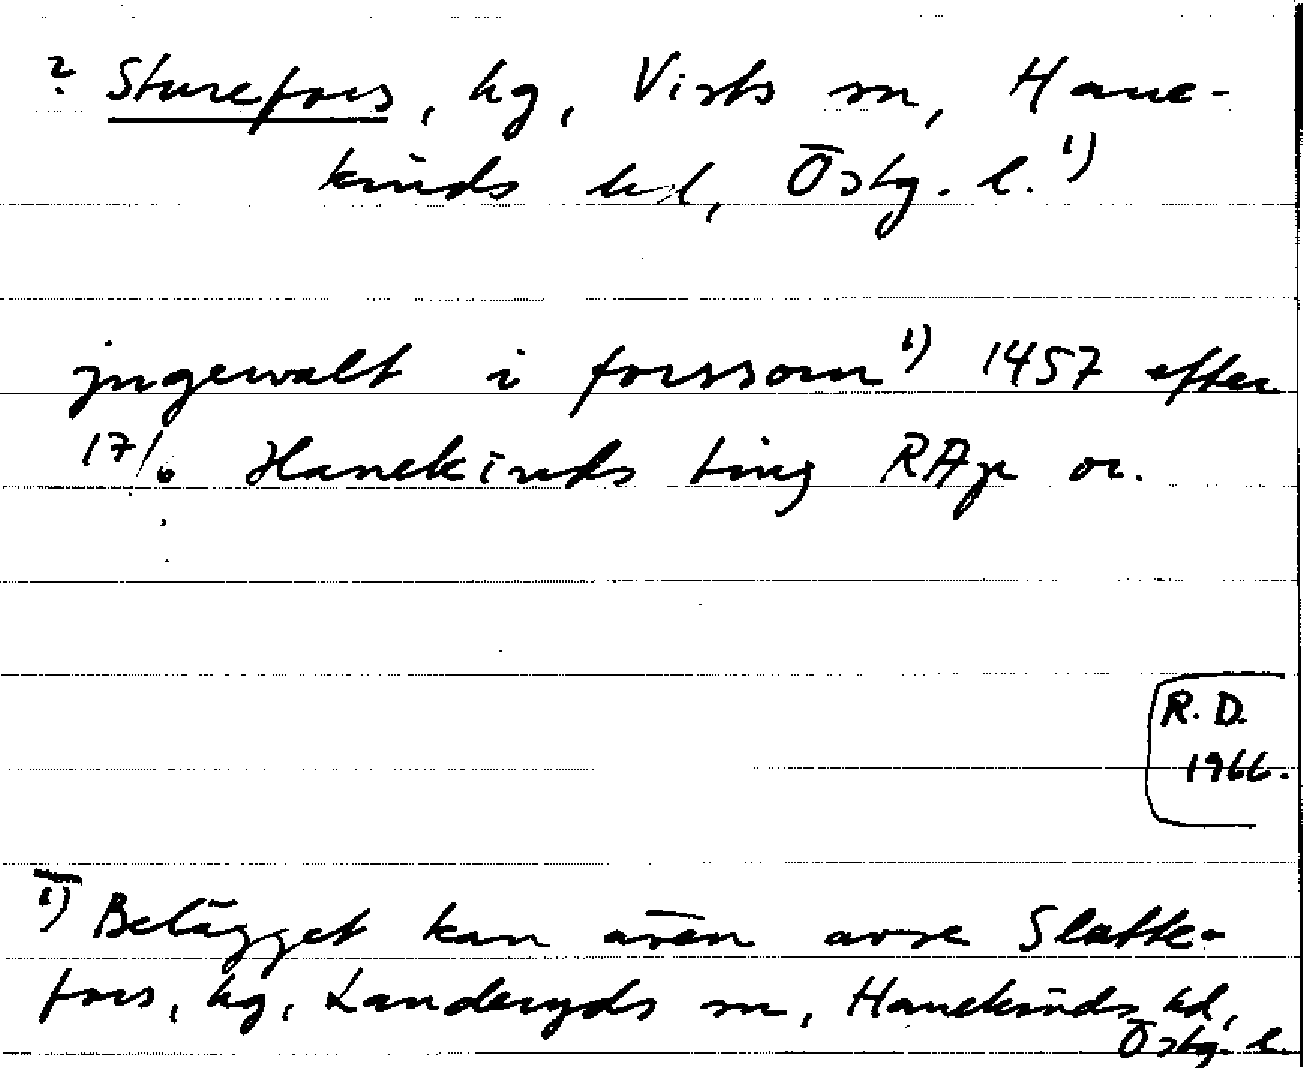 ? Sturefors, hg, Vists sn, Hane-
kinds hd, Östg. l. 1)
jngewalt i forssom 1) 1457 efter
17/6 Hanekinds ting RAp or.
R. D.
1966.
1) Belägget kan även avse Slatte-
fors, hg, Landeryds sn, Hanekinds hd,
Östg. l.